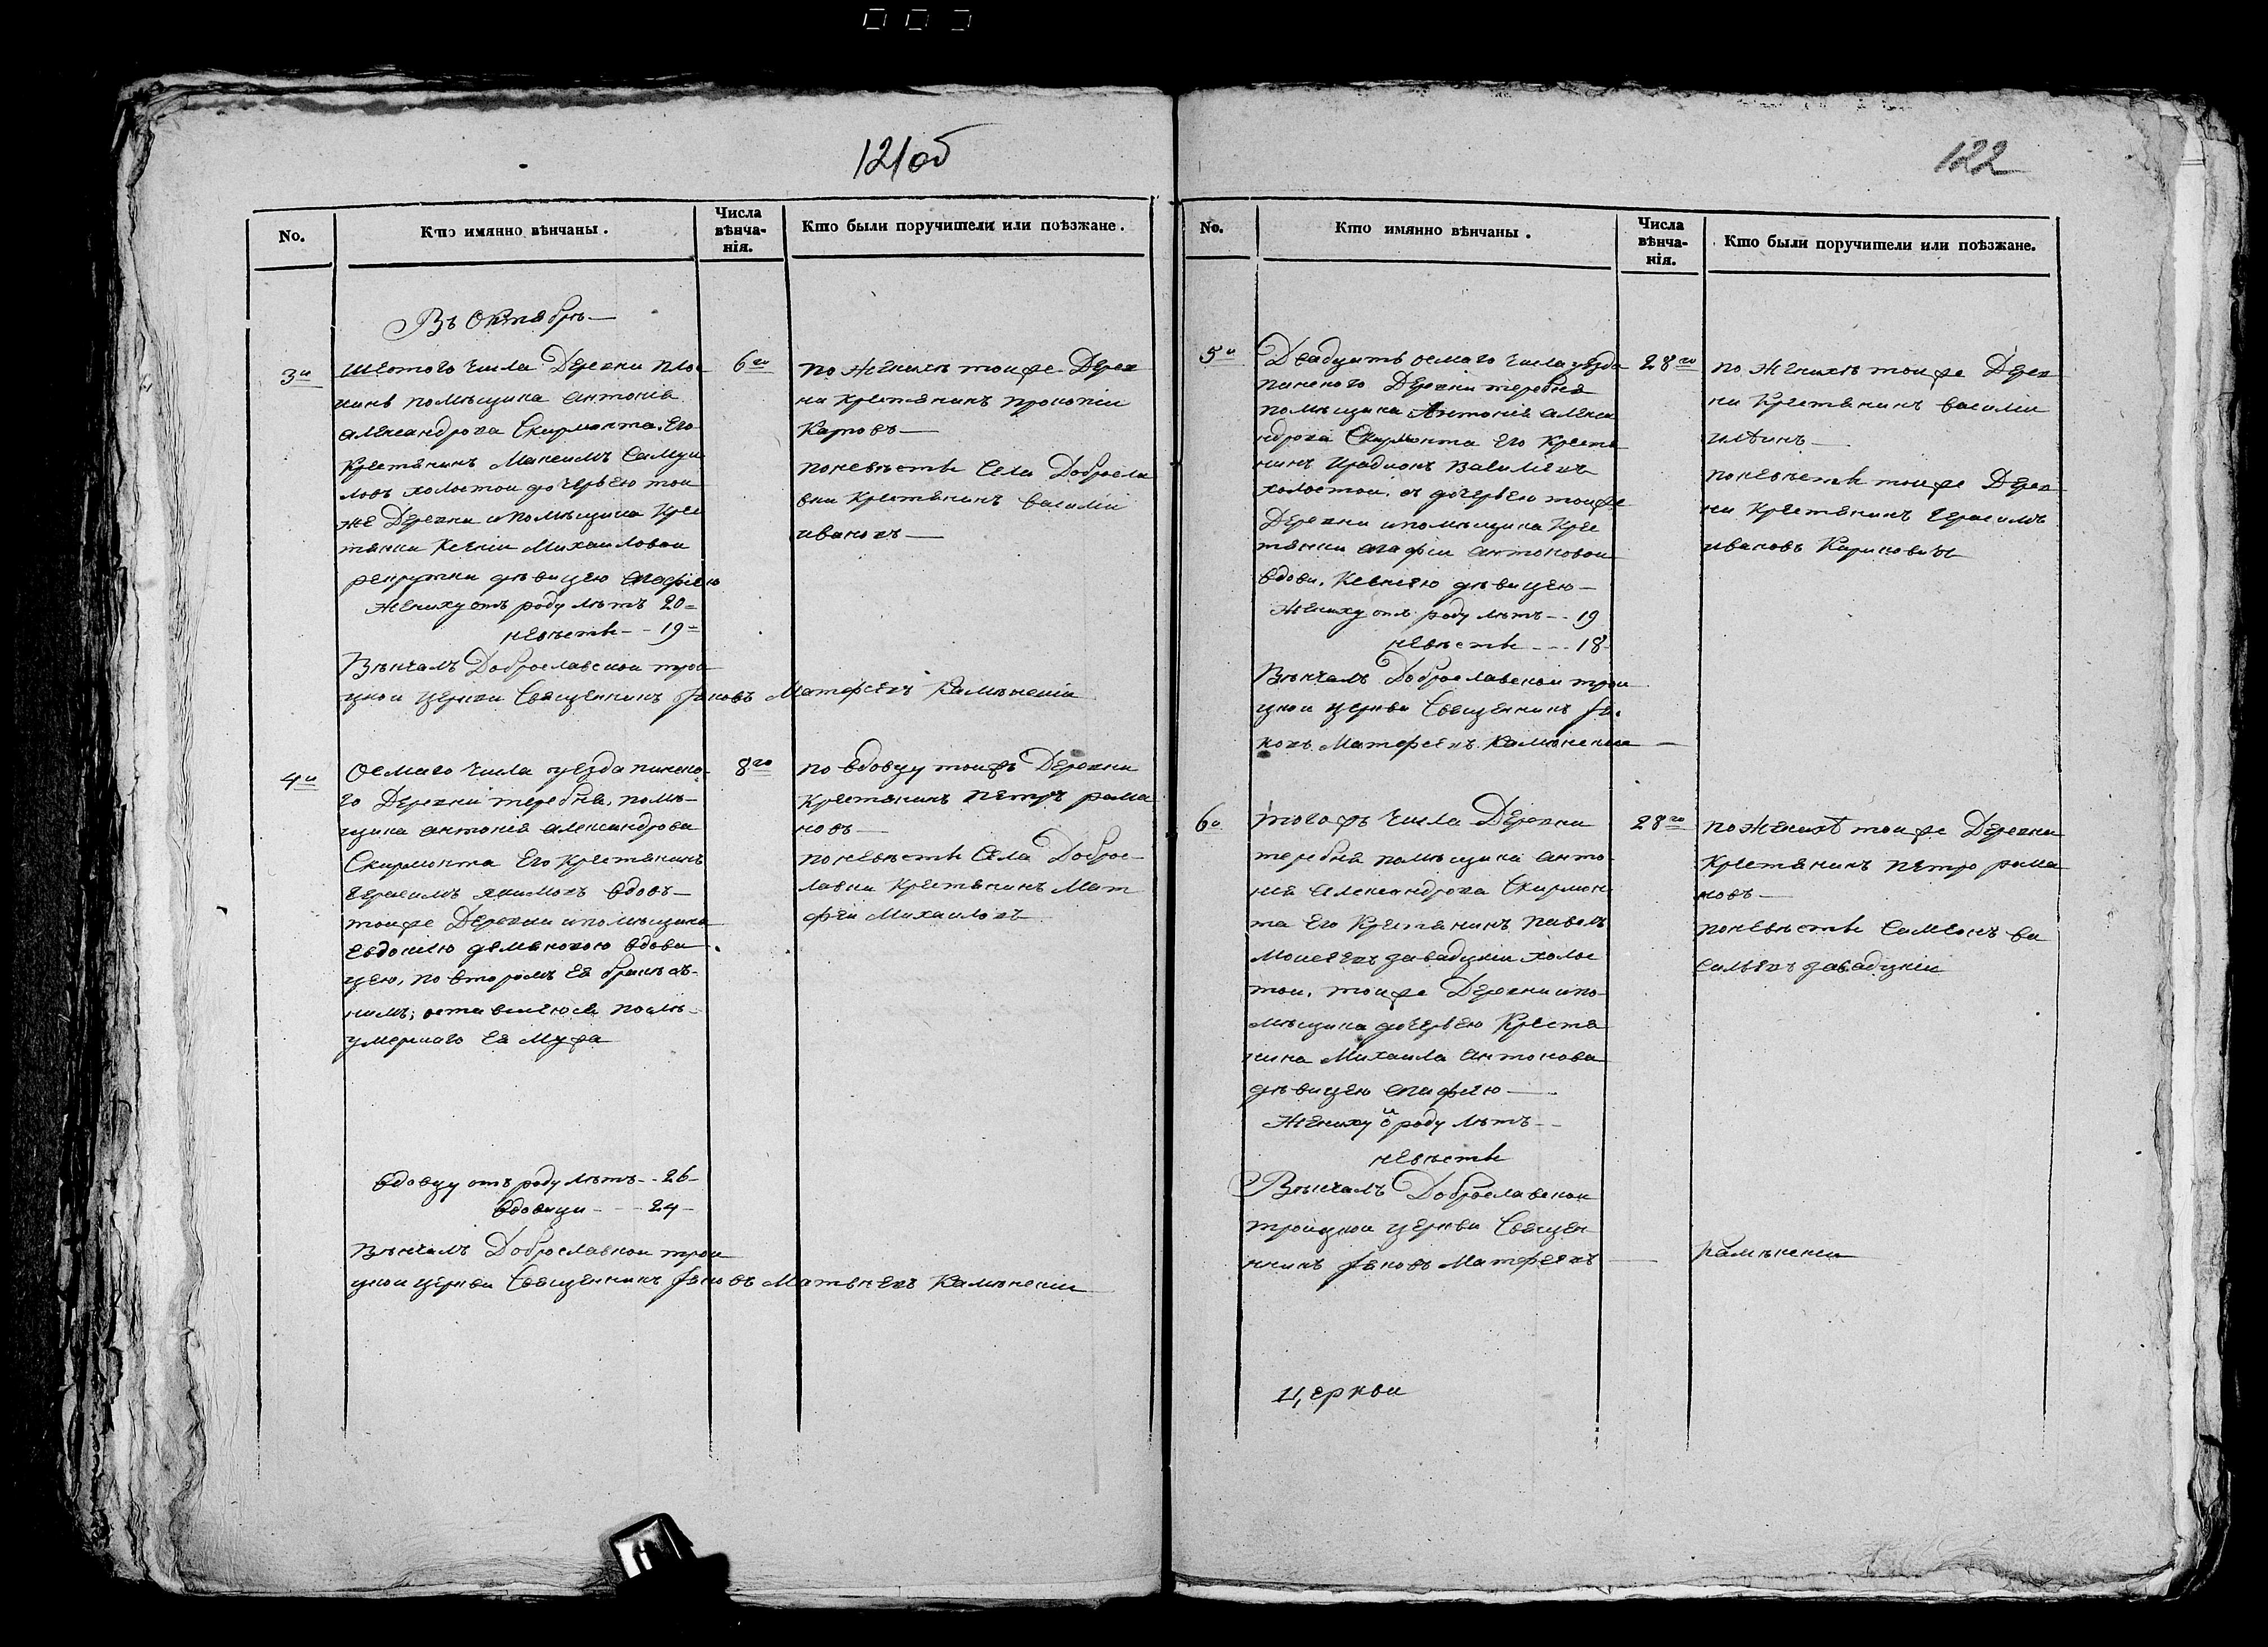 121об
No.
Кто имянно вѣнчаны.
Числа
вѣнча-
нія.
Кто были поручители или поѣзжане.
Въ Октябрѣ
3й
шестого числа Деревни Пло
помѣщика антонія
александрова Скирмонта. Его
Крестянинъ Максимъ Самуи
ловъ холостои дочерью тои
же Деревни ипомѣщика Крес
тянки Ксеніи Михаиловои
рекрутки дѣвицею агафіею
Жениху отъ роду лѣтъ 20=
невѣстѣ - - 19=
Вѣнчалъ Доброславскои трои
цкои церкви Священникъ Іаковъ Матфѣевъ Камѣнскіи
6го
по женихѣ тоиже Дерев
ни крестянинъ прокопіи
Карповъ
поневѣстѣ Села Добросла
вки Крестянинъ василіи
ивановъ
4й
Осмаго числа уезда пинско-
го Деревни теребня. помѣ-
щика антонія александрова
Скирмонта Его крестянинъ
герасимъ якимовъ вдовъ
тоиже Деревни ипомѣщика
евдокіею демяновою вдови
цею, по второмъ ея бракѣ съ
нимъ; оставшеюся послѣ
умершаго ея мужа
вдовцу отъ роду лѣтъ - - 26-
вдовици - - - 24-
вѣнчалъ Доброславкои трои
цкои церкви Священникъ Іаковъ Матвѣевъ Камѣнскіи
8го
по вдовцу тоижъ Деревни
крестянинъ петръ рома
новъ
поневѣстѣ Села Доброс-
лавки Крестянинъ Мат
фѣи Михаиловъ
122
No.
Кто имянно вѣнчаны.
Числа
вѣнча-
нія.
Кто были поручители или поѣзжане.
5й
Двадцать осмаго числа уезда
пинского Деревни теребня
помѣщика Антонія алекса
ндрова Скирмонта Его крестя
нинъ Иродионъ Василіевъ
холостои. съ дочерью тоиже
Деревни ипомѣщика Крес
тянки агафіи антоновои
вдови. Ксениею дѣвицею
Жениху отъ роду лѣтъ - - 19
невѣстѣ - - - 18
Вѣнчалъ Доброславскои трои
цкои церкви Священникъ Іа.
ковъ Матфеевъ Камѣнскіи
28го
по Женихѣ тоиже Дерев
ни Крестянинъ василіи
поневѣстѣ тоиже Дерев
ни Крестянинъ герасимъ
ивановъ
6й
тогожъ числа Деревни
теребня помѣщика анто-
нія александрова Скирмон
та Его Крестянинъ павелъ
Моисеевъ завадцкіи холос
тои. тоиже Деревни ипо-
мѣщика дочерью Крестя
нина Михаила антонова
дѣвицею агафіею
Жениху о роду лѣтъ - -
невѣстѣ
Вѣнчалъ Доброславскои
троицкои церкви Священ
никъ Іаковъ Матфеевъ Камѣнскіи
28го
по Женихѣ тоиже Деревни
Крестянинъ петро рома
новъ
поневѣстѣ Самсонъ ва
сильевъ завадцкіи
Церкви